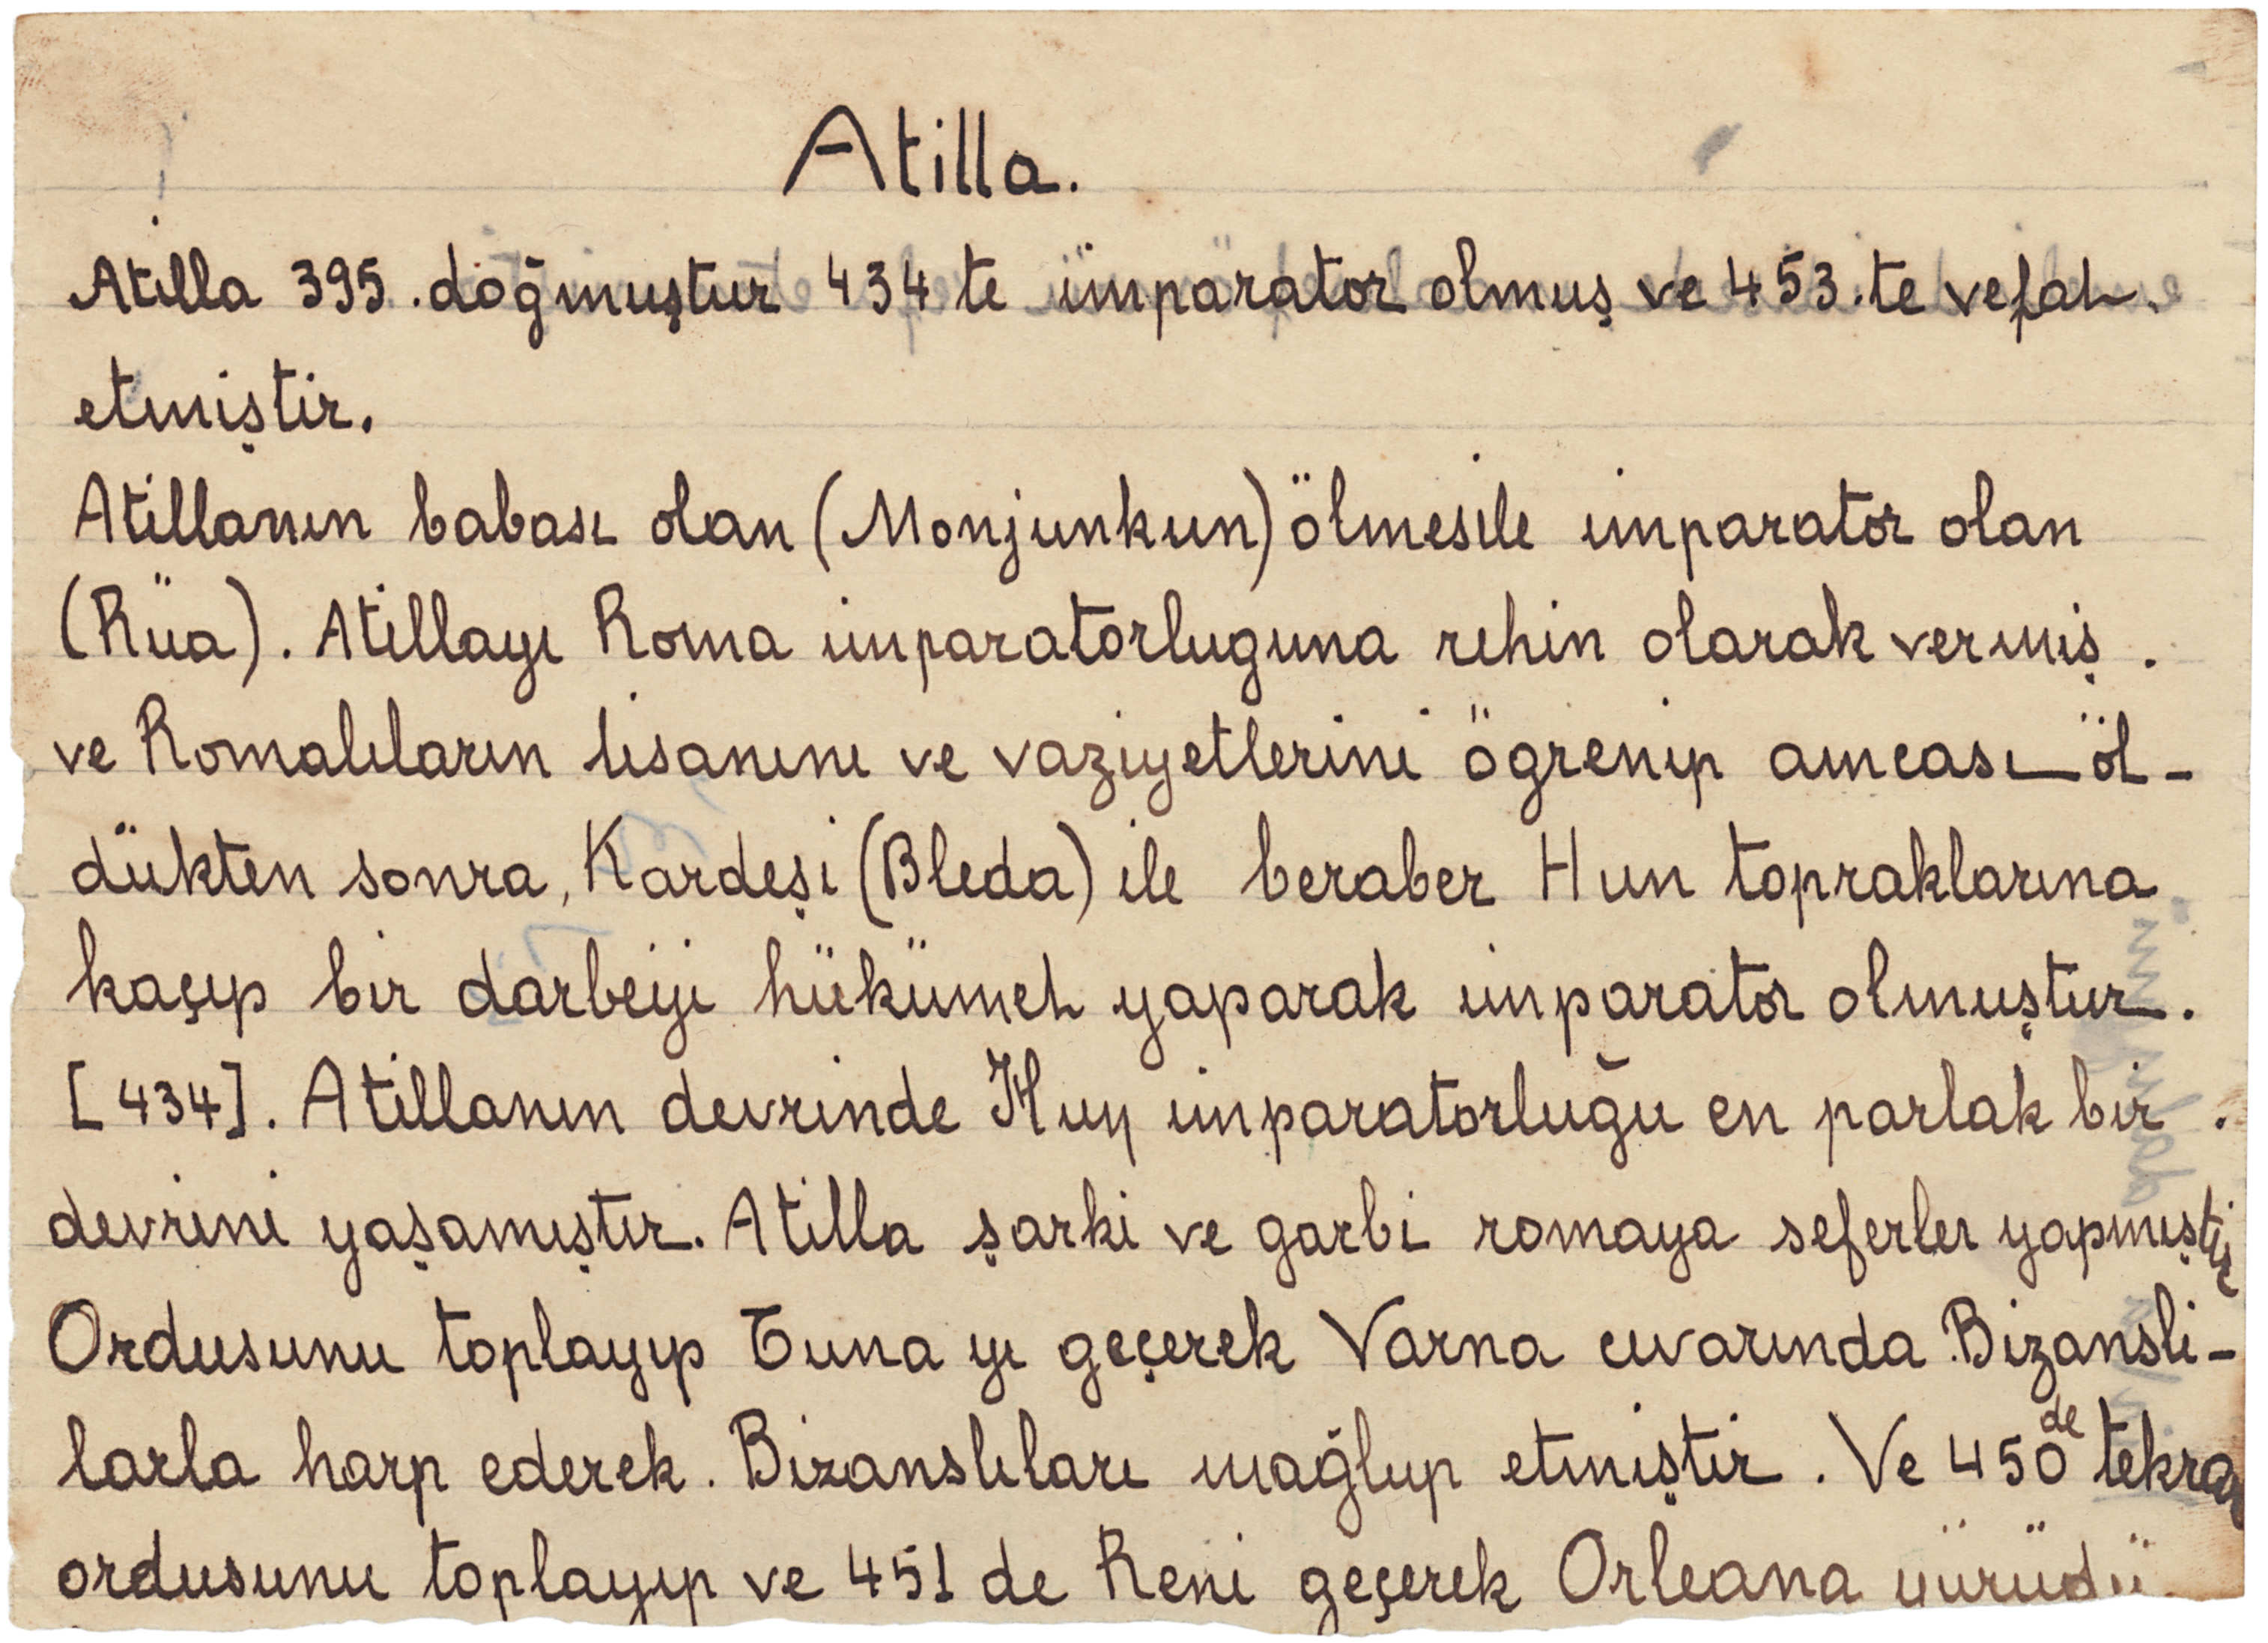 Atilla.
Atilla 395. doğmuştur 434 te imparator olmuş ve 453.te vefat.
etmiştir.
Atillanın babası olan (Monjunkun) ölmesile imparator olan
(Rüa). Atillayı Roma imparatorluguna rehin olarak vermiş.
ve Romalıların lisanını ve vaziyetlerini ögrenip amcası öl-
dükten sonra, Kardeşi (Bleda) ile beraber Hun topraklarına
kaçıp bir darbeiyi hükümet yaparak imparator olmuştur.
[434]. Atillanın devrinde Hun imparatorluğu en parlak bir.
devrini yaşamıştır. Atilla şarki ve garbi romaya seferler yapmıştır
Ordusunu toplayıp Tuna yı geçerek Varna cıvarında Bizanslı-
larla harp ederek. Bizanslıları mağlup etmiştir. Ve 450 de tekrar
ordusunu toplayıp ve 451 de Reni geçerek Orleana yürüdü